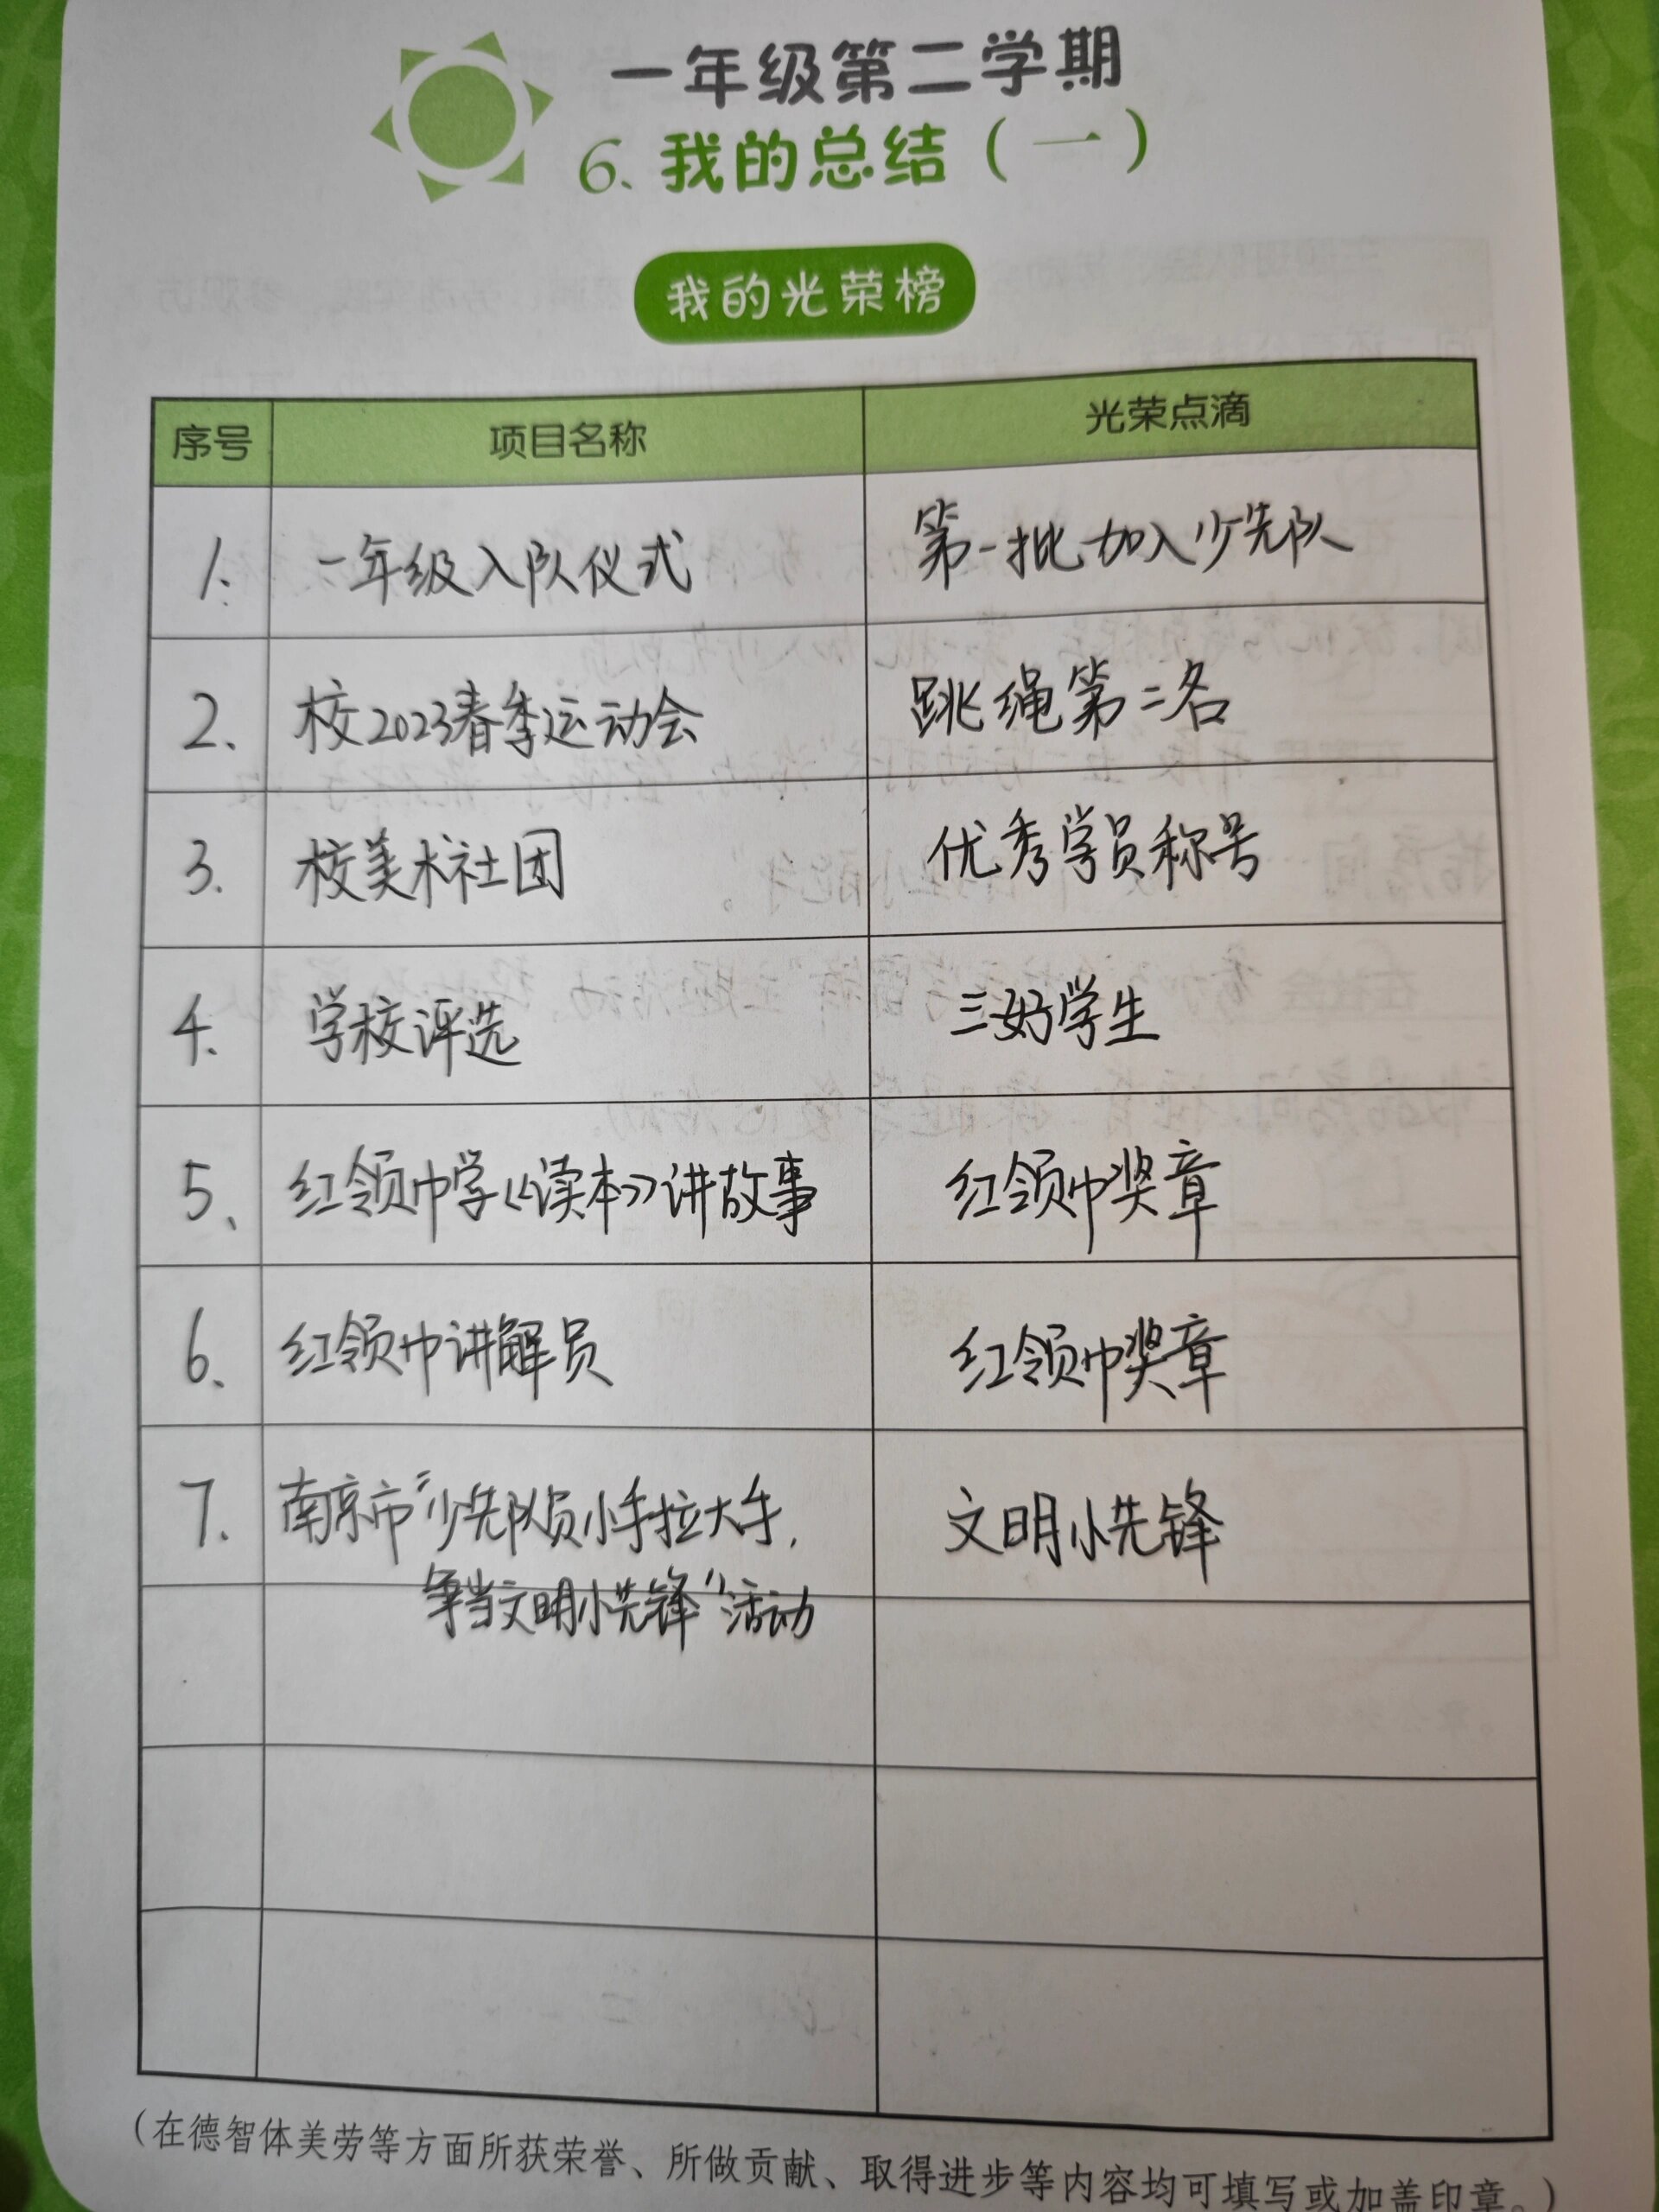 一年级第二学期
6.我的总结(一)
我的光荣榜
序号 项目名称 光荣点滴
1. 一年级入队仪式 第一批加入少先队
2、 校2023春季运动会 跳绳第二名
3. 校美术社团 优秀学员称号
4. 学校评选 三好学生
5、 红领巾学《读本》讲故事 红领巾奖章
6、 红领巾讲解员 红领巾奖章
7. 南京市“少先队员小手拉大手, 文明小先锋
争当文明小先锋”活动
(在德智体美劳等方面所获荣誉、所做贡献、取得进步等内容均可填写或加盖印章。)